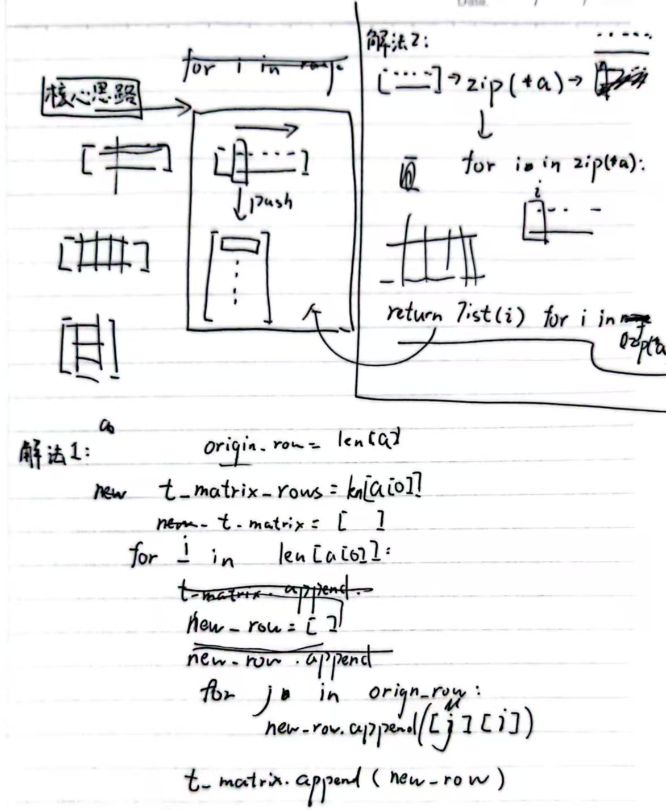 Date. / /
for i in range
核心思路
push
解法2:
[ ] → zip(*a) →
for i in zip(*a):
i
return list(i) for i in
zip(*a)
解法1:
origin_row = len[a]
new t_matrix_rows = len[a[0]]
t_matrix = [ ]
for i in len[a[0]]:
t_matrix.append
new_row = [ ]
new_row.append
for j in orign_row:
new_row.append([j][i])
t_matrix.append(new_row)